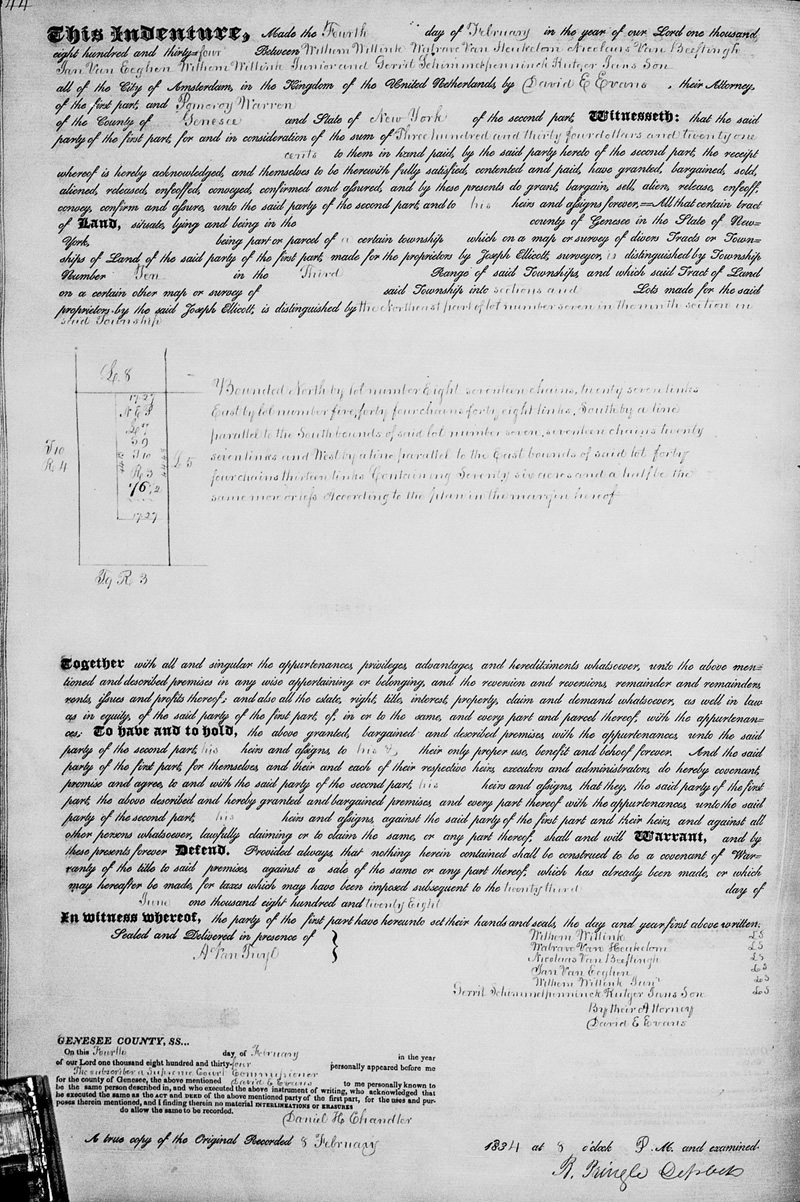 44
This Indenture, Made the Fourth day of February in the year of our Lord one thousand
eight hundred and thirty-four Between Wilhem Willink Walrave Van Heukelom Nicolaus Van Beeftingh
Jan Van Eeghen Wilhem Willink Junior and Gerrit Schimmelpenninck Rutger Jans Son
all of the City of Amsterdam, in the Kingdom of the United Netherlands, by David E Evans , their Attorney,
of the first part, and Pomeroy Warren
of the County of Genesee and State of New York of the second part, Witnesseth: that the said
party of the first part, for and in consideration of the sum of Three hundred and thirty four dollars and twenty one
cents to them in hand paid, by the said party hereto of the second part, the receipt
whereof is hereby acknowledged, and themselves to be therewith fully satisfied, contented and paid, have granted, bargained, sold,
aliened, released, enfeoffed, conveyed, confirmed and assured, and by these presents do grant, bargain, sell, alien, release, enfeoff,
convey, confirm and assure, unto the said party of the second part, and to his heirs and assigns forever,—All that certain tract
of Land, situate, lying and being in the county of Genesee in the State of New-
York, being part or parcel of a certain township which on a map or survey of divers Tracts or Town-
ships of Land of the said party of the first part, made for the proprietors by Joseph Ellicott, surveyor, is distinguished by Township
Number Ten in the Third Range of said Townships, and which said Tract of Land
on a certain other map or survey of said Township into sections and Lots made for the said
proprietors by the said Joseph Ellicott, is distinguished by the Northeast part of lot number seven in the ninth section in
said Township
L. 8
17.27
N E P
L 7
S 9
T 10
R 3
76 1/2
17.27
T 10
R 4
L 5
T 9 R 3
Bounded North by lot number Eight seventeen chains, twenty seven links
East by lot number five, forty four chains forty eight links, South by a line
parallel to the South bounds of said lot number seven, seventeen chains twenty
seven links and West by a line parallel to the East bounds of said lot forty
four chains thirteen links Containing Seventy six acres and a half be the
same more or less According to the plan in the margin hereof
Together with all and singular the appurtenances, privileges, advantages, and hereditiments whatsoever, unto the above men-
tioned and described premises in any wise appertaining or belonging, and the reversion and reversions, remainder and remainders,
rents, issues and profits thereof; and also all the estate, right, title, interest, property, claim and demand whatsoever, as well in law
as in equity, of the said party of the first part, of, in or to the same, and every part and parcel thereof, with the appurtenan-
ces: To have and to hold, the above granted, bargained and described premises, with the appurtenances, unto the said
party of the second part, his heirs and assigns, to his & their only proper use, benefit and behoof forever. And the said
party of the first part, for themselves, and their and each of their respective heirs, executors and administrators, do hereby covenant,
promise and agree, to and with the said party of the second part, his heirs and assigns, that they, the said party of the first
part, the above described and hereby granted and bargained premises, and every part thereof with the appurtenances, unto the said
party of the second part, his heirs and assigns, against the said party of the first part and their heirs, and against all
other persons whatsoever, lawfully claiming or to claim the same, or any part thereof, shall and will Warrant, and by
these presents forever Defend. Provided always, that nothing herein contained shall be construed to be a covenant of War-
ranty of the title to said premises, against a sale of the same or any part thereof, which has already been made, or which
may hereafter be made, for taxes which may have been imposed subsequent to the twenty third day of
June one thousand eight hundred and twenty Eight
In witness whereof, the party of the first part have hereunto set their hands and seals, the day and year first above written.
Sealed and Delivered in presence of
A Van Tuyl
Wilhem Willink LS
Walrave Van Heukelom LS
Nicolaus Van Beeftingh LS
Jan Van Eeghen LS
Wilhem Willink Junr LS
Gerrit Schimmelpenninck Rutger Jans Son LS
By their Attorney
David E Evans
GENESEE COUNTY, SS...
On this Fourth day of February in the year
of our Lord one thousand eight hundred and thirty-four personally appeared before me
The subscriber a Supreme Court Commissioner
for the county of Genesee, the above mentioned David E Evans to me personally known to
be the same person described in, and who executed the above instrument of writing, who acknowledged that
he executed the same as the ACT and DEED of the above mentioned party of the first part, for the uses and pur-
poses therein mentioned, and I finding therein no material INTERLINEATIONS OR ERASURES
do allow the same to be recorded.
Daniel H Chandler
A true copy of the Original Recorded 8 February 1834 at 8 o'clock P. M. and examined.
R. Pringle